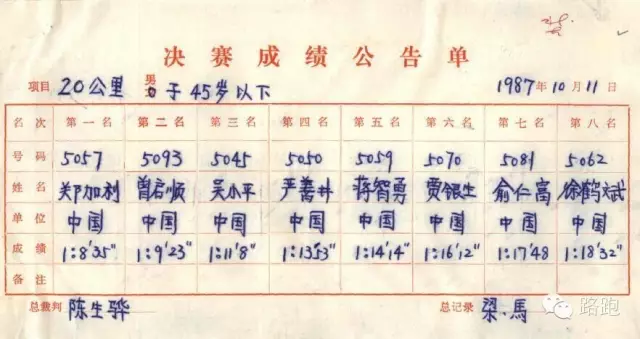 决赛成绩公告单
项目 20公里 男子 45岁以下 1987年10月11日
名次 第一名 第二名 第三名 第四名 第五名 第六名 第七名 第八名
号码 5057 5093 5045 5050 5059 5070 5081 5062
姓名 郑加利 曾君顺 吴小平 严善井 蒋智勇 贾银生 俞仁富 徐鹤斌
单位 中国 中国 中国 中国 中国 中国 中国 中国
成绩 1:8'35" 1:9'23" 1:11'8" 1:13'53" 1:14'14" 1:16'12" 1:17'48 1:18'32"
备注
总裁判 陈生骅 总记录 梁.馬
路跑